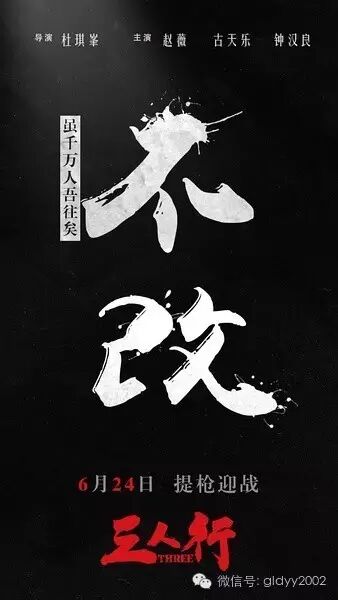 导演 杜琪峯 主演 赵薇 古天乐 钟汉良
虽千万人吾往矣
不
改
6月24日 提枪迎战
三人行
THREE
微信号: gldyy2002